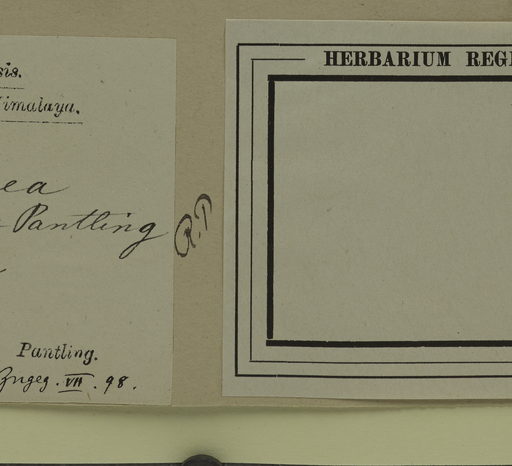 sis.
Himalaya.
ea
Pantling
R.P
Pantling.
Zngeg. VII. 98.
HERBARIUM REGI